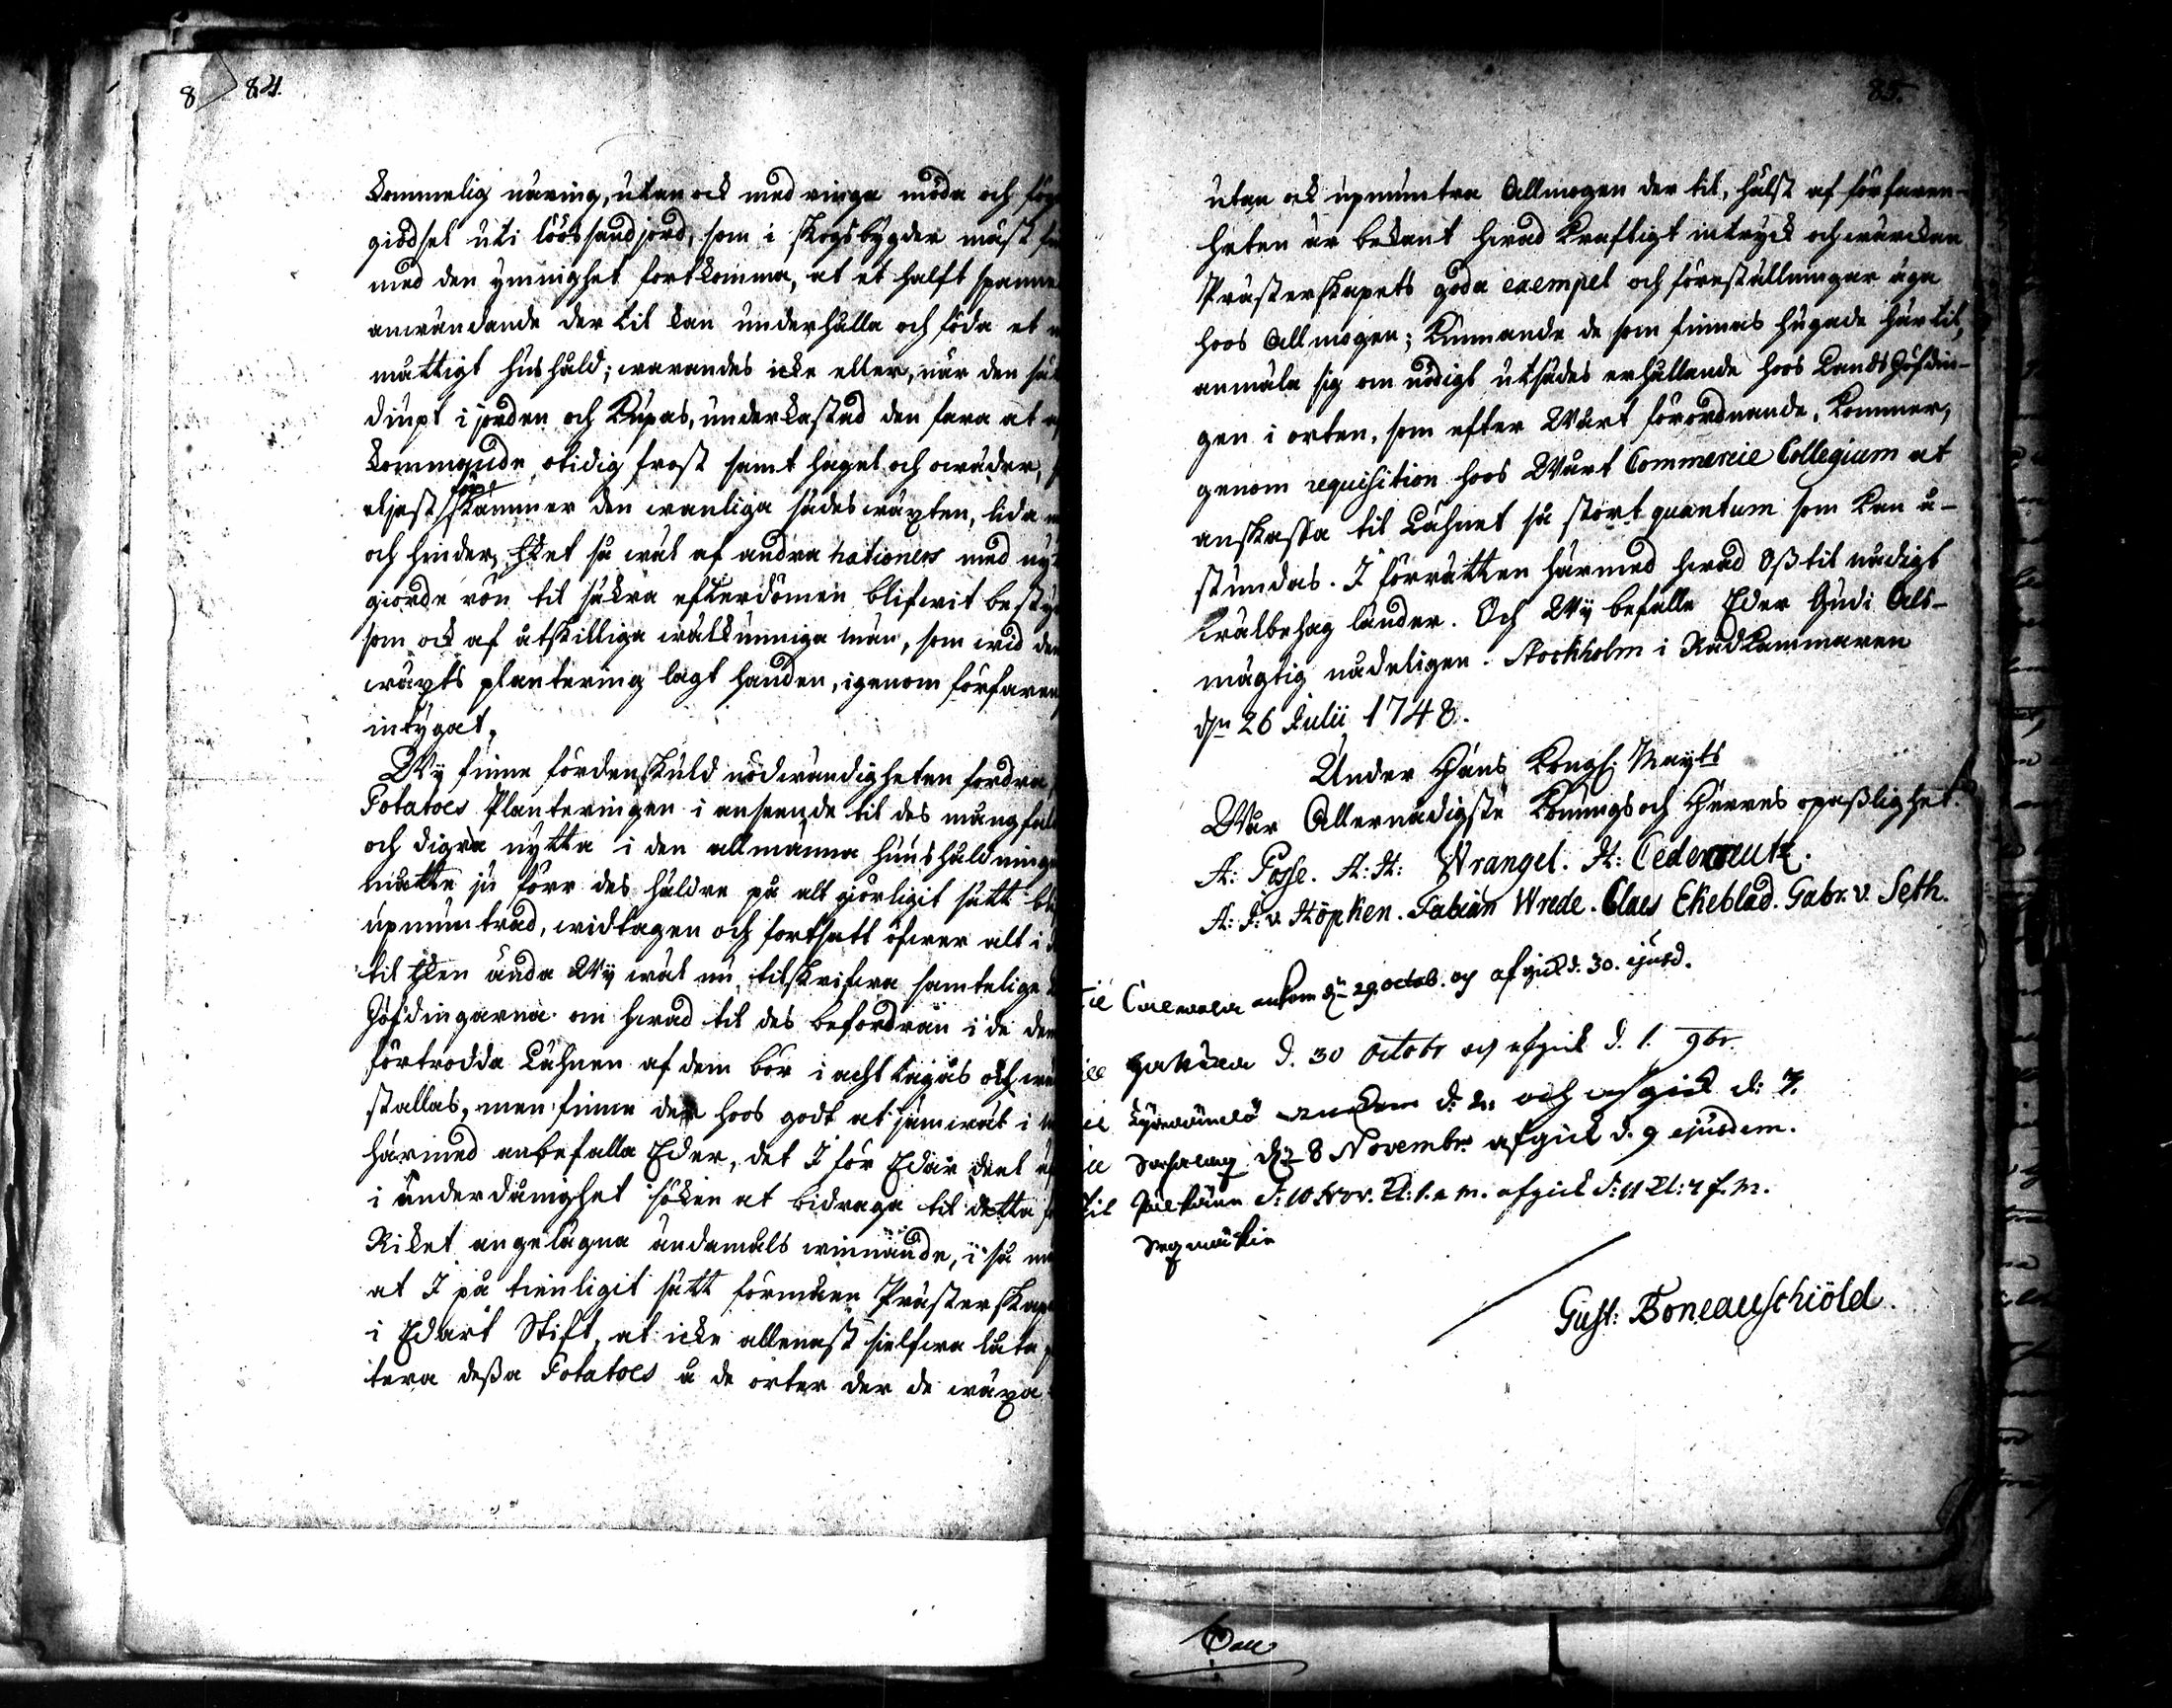 8 84.
kommelig näring, utan ock med ringa möda och
giödsel uti löös sandjord, som i skogsbygder mäst
med den ymnighet fortkomma, at et halft spanne
anwändande der til kan underhålla och föda et
måttigt hushåld; warandes icke eller, när den
diupt i jorden och kupas, underkastad den fara at
kommande otidig frost samt hagel och owäder,
eljest skämmer den wanliga sädeswäxten, lida
och hinder, det så wäl af andra nationers med
giorde rön til säkra efterdömen blifwit
som ock af åtskilliga wälkunniga män, som wid
wäxts plantering lagt handen, igenom
intygat.
Wy finne fördenskuld nödwändigheten fordra,
Potatoes Planteringen i anseende til des
och digra nytta i den allmänna
måtte ju förr des häldre på alt giörligit sätt
upmuntrad, widtagen och fortsatt öfwer alt i
til den ända Wy wäl nu tilskrifwa samtelige
Höfdingarna om hwad til des befordran i de
förtrodda Lähnen af dem bör i acht tagas och
stallas, men finne der hoos godt at jämwäl i
härmed anbefalla Eder, det I för Edar deel
i underdånighet söken at bidraga til detta
Riket angelägna ändamåls winnande, i så
at I på tienligit sätt förmåen
i Edart Stift, at icke allenast sielfwa låta
tera dessa Potatoes å de orter der de wäxa
85.
utan ock upmuntra Allmogen der til, hälst af förfaren-
heten är bekant hwad kraftigt intryck och wärckan
Prästerskapets goda exempel och föreställningar äga
hoos Allmogen; kunnande de som finnas hugade här til,
anmäla sig om nödigt utsädes erhållande hoos Landshöfdin-
gen i orten, som efter Wårt förordnande, kommer,
genom requisition hoos Wårt Commercie Collegium at
anskaffa til Lähnet så stort quantum som kan å-
stundas. I förrätten härmed hwad Oss til nådigt
wälbehag länder. Och Wy befalle Eder Gudi Als-
mägtig nådeligen. Stockholm i Rådkammaren
dn 26 Julii 1748.
Under Hans Kongl. Mayts
Wår Allernådigste Konungs och Herres opasslighet.
A: Posse. A: H: Wrangel. H: Cedercreutz.
A: J: v. Höpken. Fabian Wrede. Claes Ekeblad. Gabr. v. Seth.
ankom dn 29. octob. og afgick d. 30. ejusd.
d. 30 octobr och afgick d. 1. 9br.
d. 2. och afgick d: 7.
d. 8 Novembr. afgick d. 9 ejusdem.
til Pälkäne d: 10 Nov. Kl: 1. e m. afgick d: 11 Kl: 7 f. m.
Gust: Boneauschiöld.